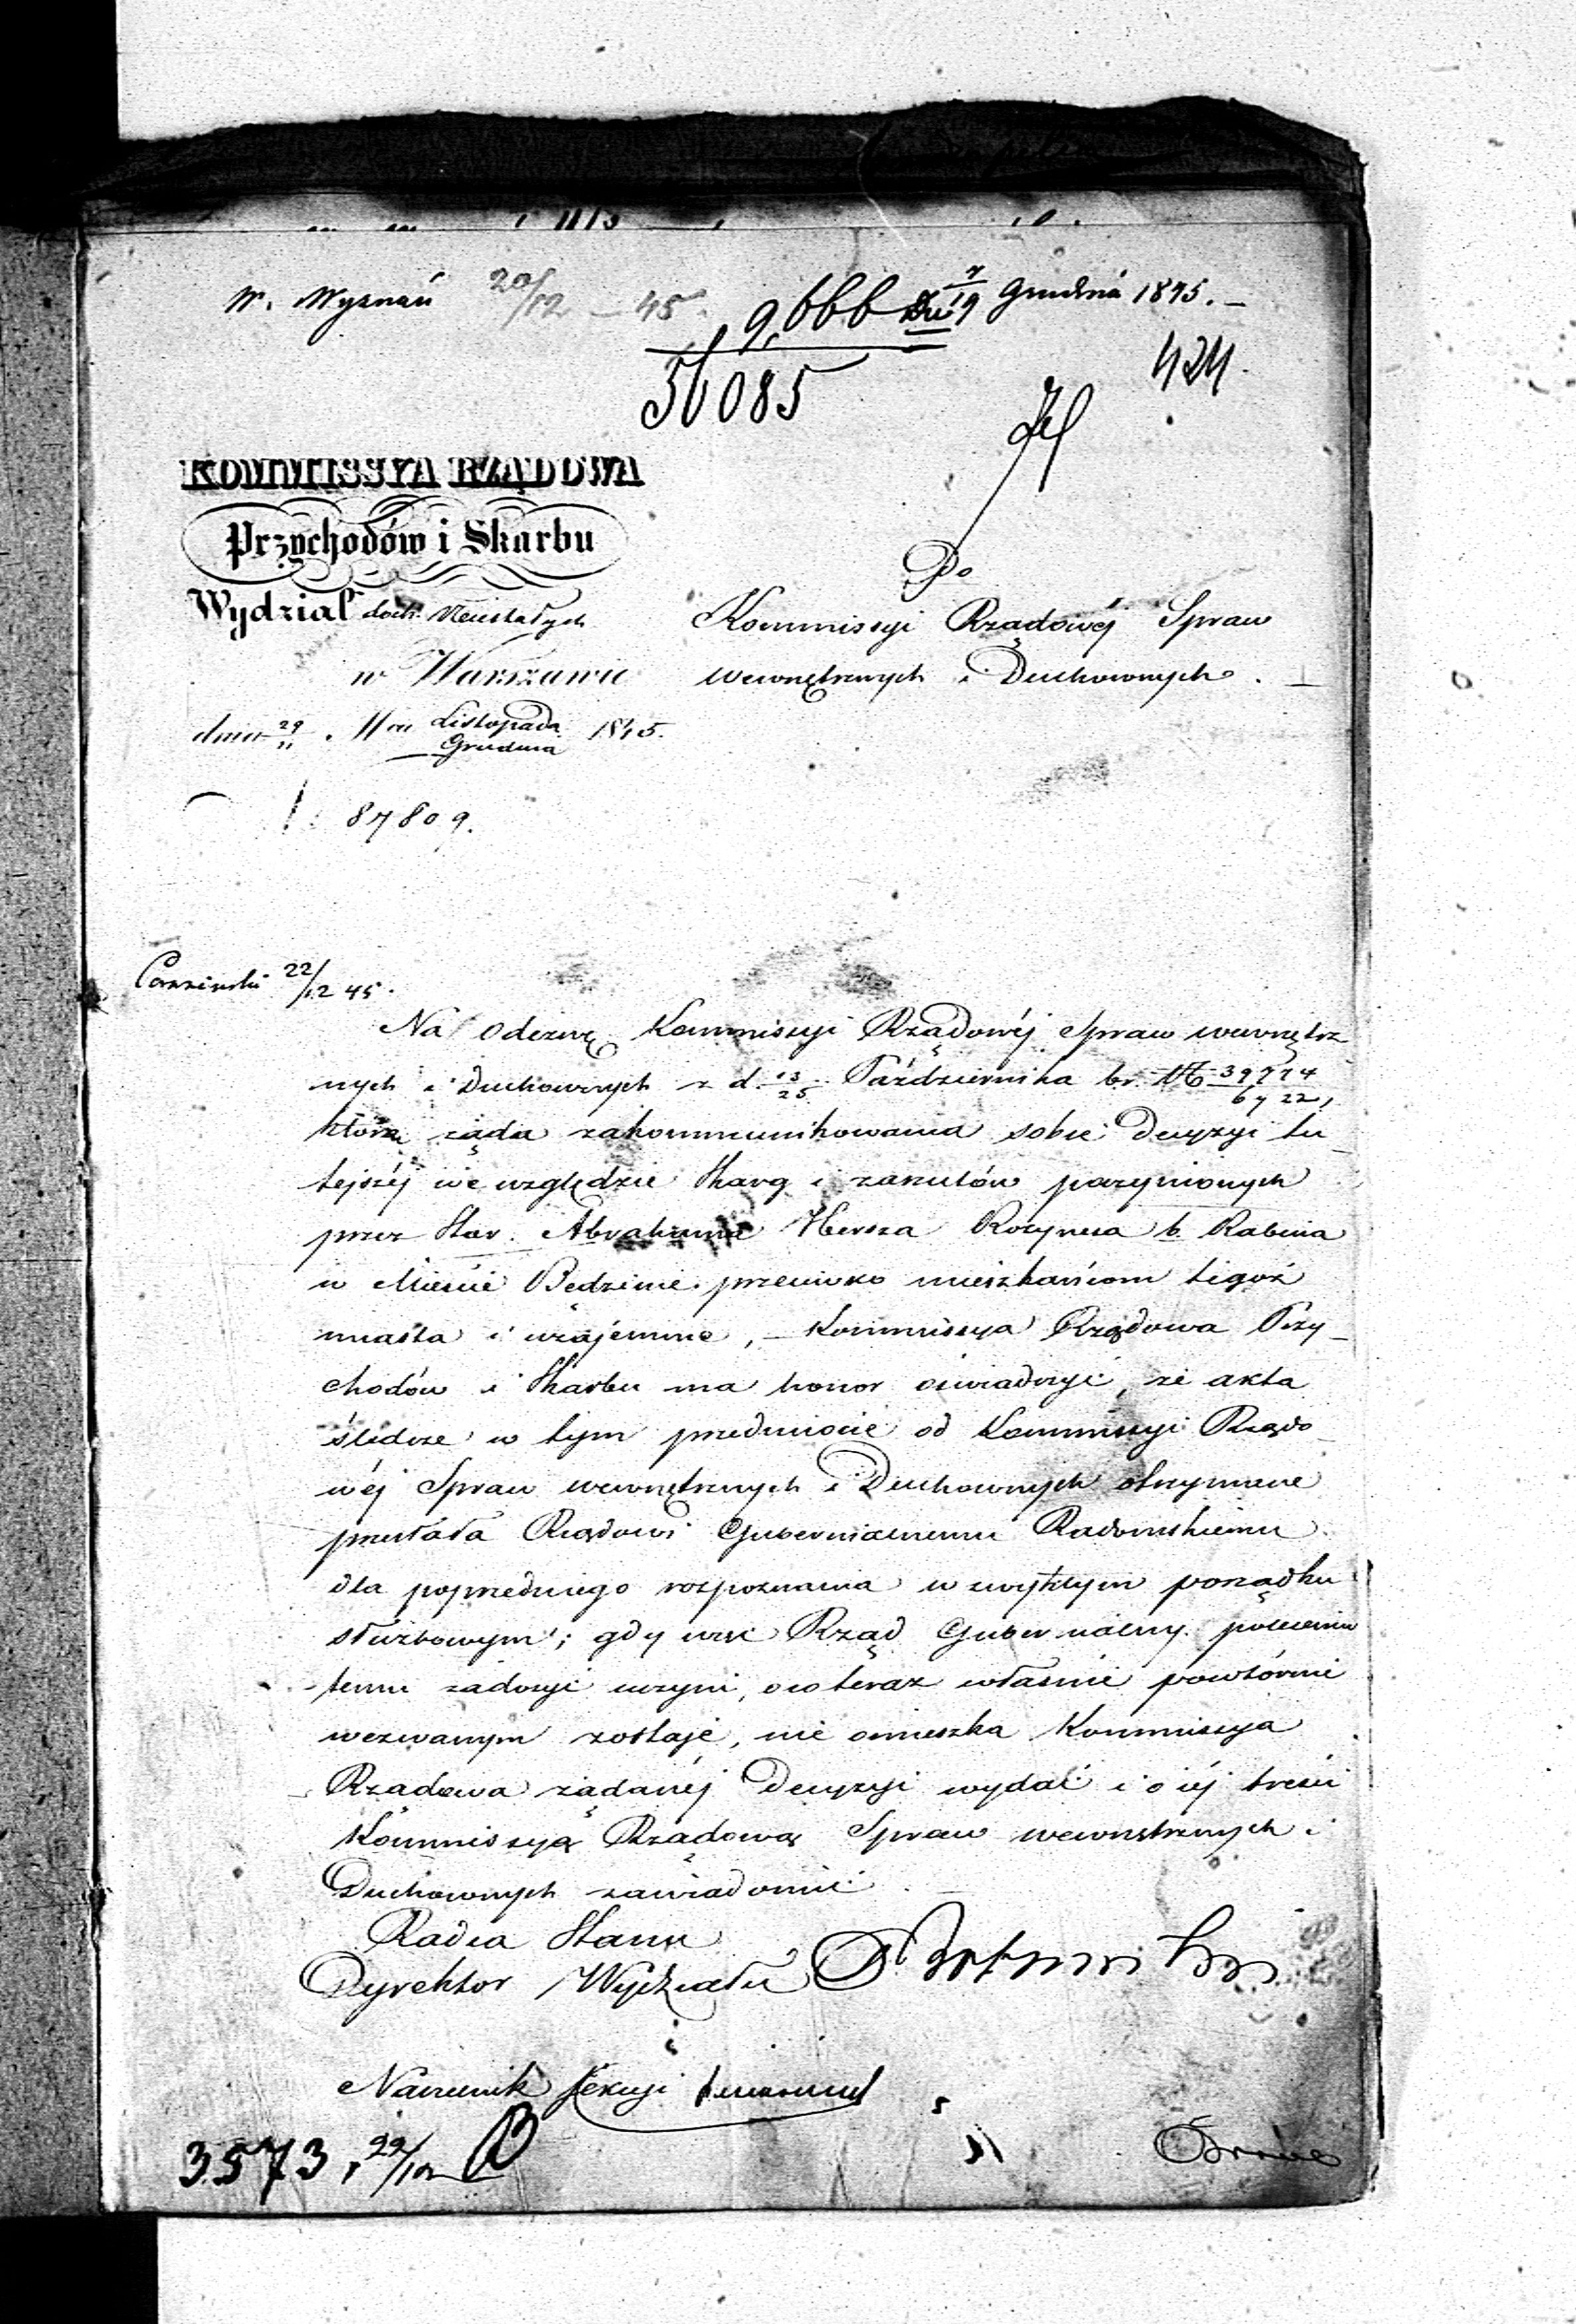 W. Wyznań 20/12 – 45. 9,666 Dn 7/19 Grudnia 1845. –
56085
424.
KOMMISSYA RZĄDOWA
Przychodów i Skarbu
Wydział doch: Niestałych
w Warszawie
dnia 29/11 Mca Listopada/Grudnia 1845.
87809.
Do
Kommissyi Rządowéj Spraw
wewnętrznych i Duchownych. –
22/12 45.
Na Odezwę Kommissyi Rządowéj Spraw wewnętrz
nych i Duchownych z d. 13/25 Października br. № 39774/6722,
którą żąda zakommunikowania sobie Decyzyi tu
tejszéj we względzie skarg i zarzutów poczynionych
przez Star. Abrahama Hersza Rozynesa b. Rabina
w Mieście Będzinie przeciwko mieszkańcom tegoż
miasta i wzajemnie, – Kommissya Rządowa Przy–
chodów i Skarbu ma honor oświadczyć, że akta
śledcze w tym przedmiocie od Kommissyi Rządo
wéj Spraw wewnętrznych i Duchownych otrzymane
przesłała Rządowi Gubernialnemu Radomskiemu
dla poprzedniego rozpoznania w zwykłym porządku
służbowym; gdy więc Rząd Gubernialny poleceniu
temu zadosyć uczyni, o co teraz właśnie powtórnie
wezwanym zostaje, nie omieszka Kommissya
Rządowa żądanéj Decyzyi wydać i o jéj treści
Kommissyą Rządową Spraw wewnętrznych i
Duchownych zawiadomić.
Radca Stanu
Dyrektor Wydziału
Naczelnik Sekcyi
3573, 22/12